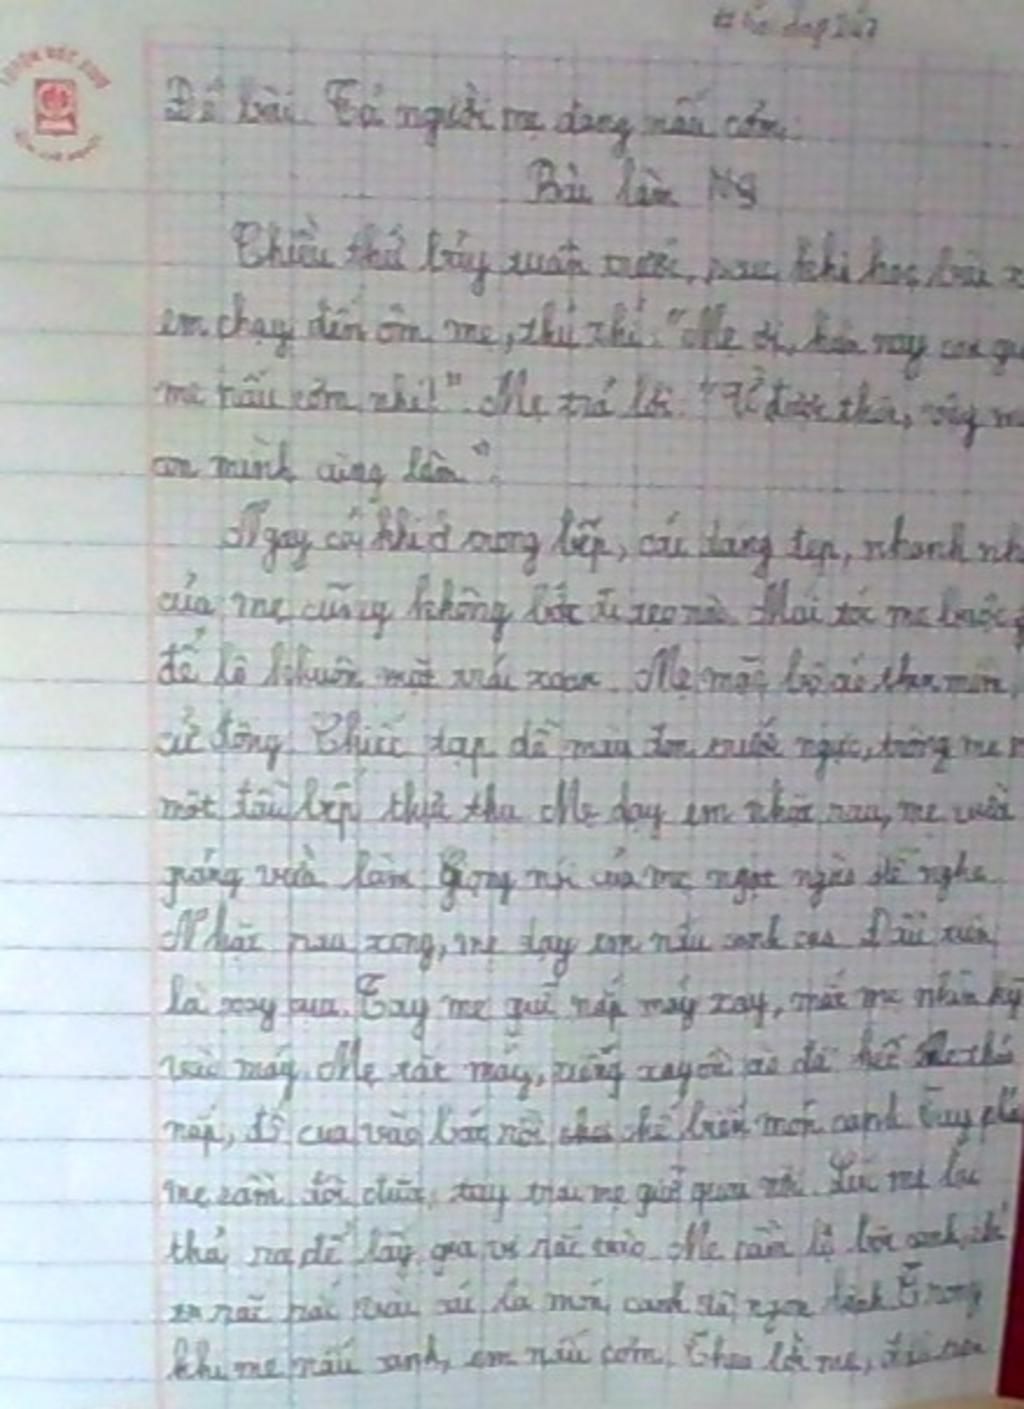 Đề bài: Tả người mẹ đang nấu cơm.
Bài làm
Chiều thứ bảy tuần trước, sau khi học bài
em chạy đến ôm mẹ, thủ thỉ: "Mẹ ơi, hôm nay con
mẹ nấu cơm nhé!". Mẹ trả lời: "Ừ được thôi, vậy mẹ
con mình cùng làm".
Ngay cả khi ở trong bếp, cái dáng đẹp, nhanh
của mẹ cũng không bớt đi tẹo nào. Mái tóc mẹ buộc
để lộ khuôn mặt trái xoan. Mẹ mặc bộ áo thun mềm,
cử động. Chiếc tạp dề màu trước ngực, trông mẹ
một đầu bếp thực thụ. Mẹ dạy em nhặt rau, mẹ vừa
giảng vừa làm. Giọng nói của mẹ ngọt ngào dễ nghe.
Nhặt rau xong, mẹ dạy em nấu canh cua. Đầu tiên
là xay cua. Tay mẹ giữ nắp máy xay, mắt mẹ nhìn kỹ
vào máy. Mẹ tắt máy, tiếng xay ồn ào đã hết.
nắp, đổ cua vào bát rồi chế biến món canh. Tay
mẹ cầm đôi đũa, tay trái mẹ giữ quai nồi. Lúc mẹ
thả ra để lấy gia vị rắc vào. Mẹ cầm lọ bột canh, chỉ
rắc rắc vài cái là món canh đã ngon lành. Trong
khi mẹ nấu canh, em nấu cơm. Theo lời mẹ, đầu tiên